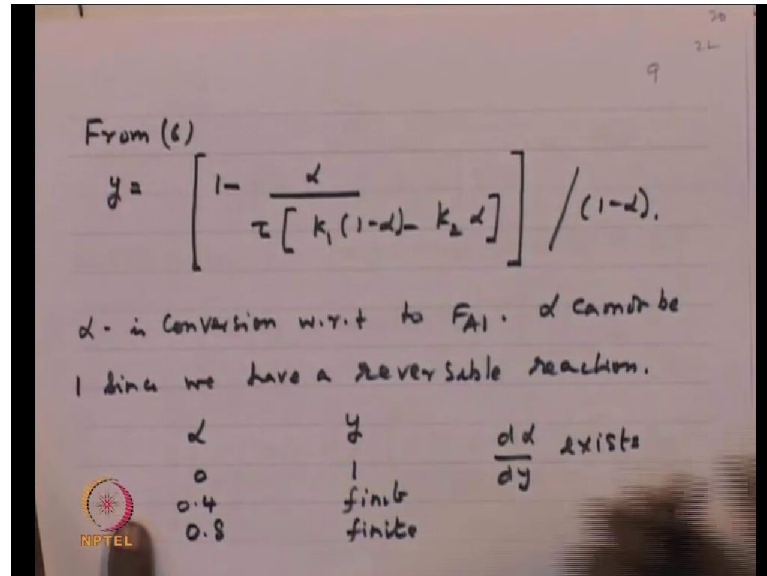 20
22
9
From (6)
y = [ 1 - α / τ [ k₁ (1-α) - k₂ α ] ] / (1-α).
α - is Conversion w.r.t to F_A1. α cannot be
1 since we have a reversable reaction.
α y dα/dy exists
0 1
0.4 finite
0.8 finite
NPTEL